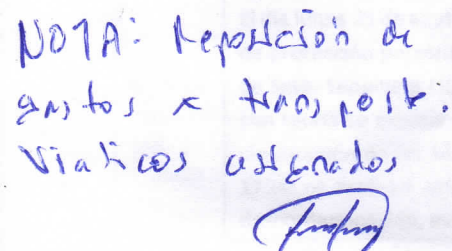 NOTA: Reposición de
gastos x transporte.
Viaticos asignados